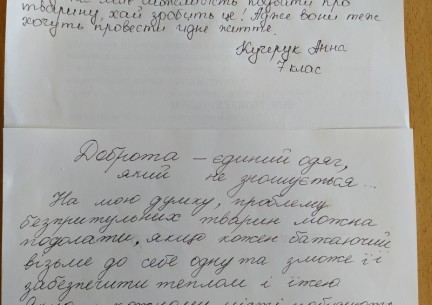 має можливість подбати про
тварину, хай зробить це! Адже вони теж
хочуть провести гідне життя.
Кучерук Анна
7 клас
Доброта – єдиний одяг,
який не зношується...
На мою думку, проблему
безпритульних тварин можна
подолати, якщо кожен бажаючий
візьме до себе одну та зможе її
забезпечити теплом і їжею
кожному місті побачать